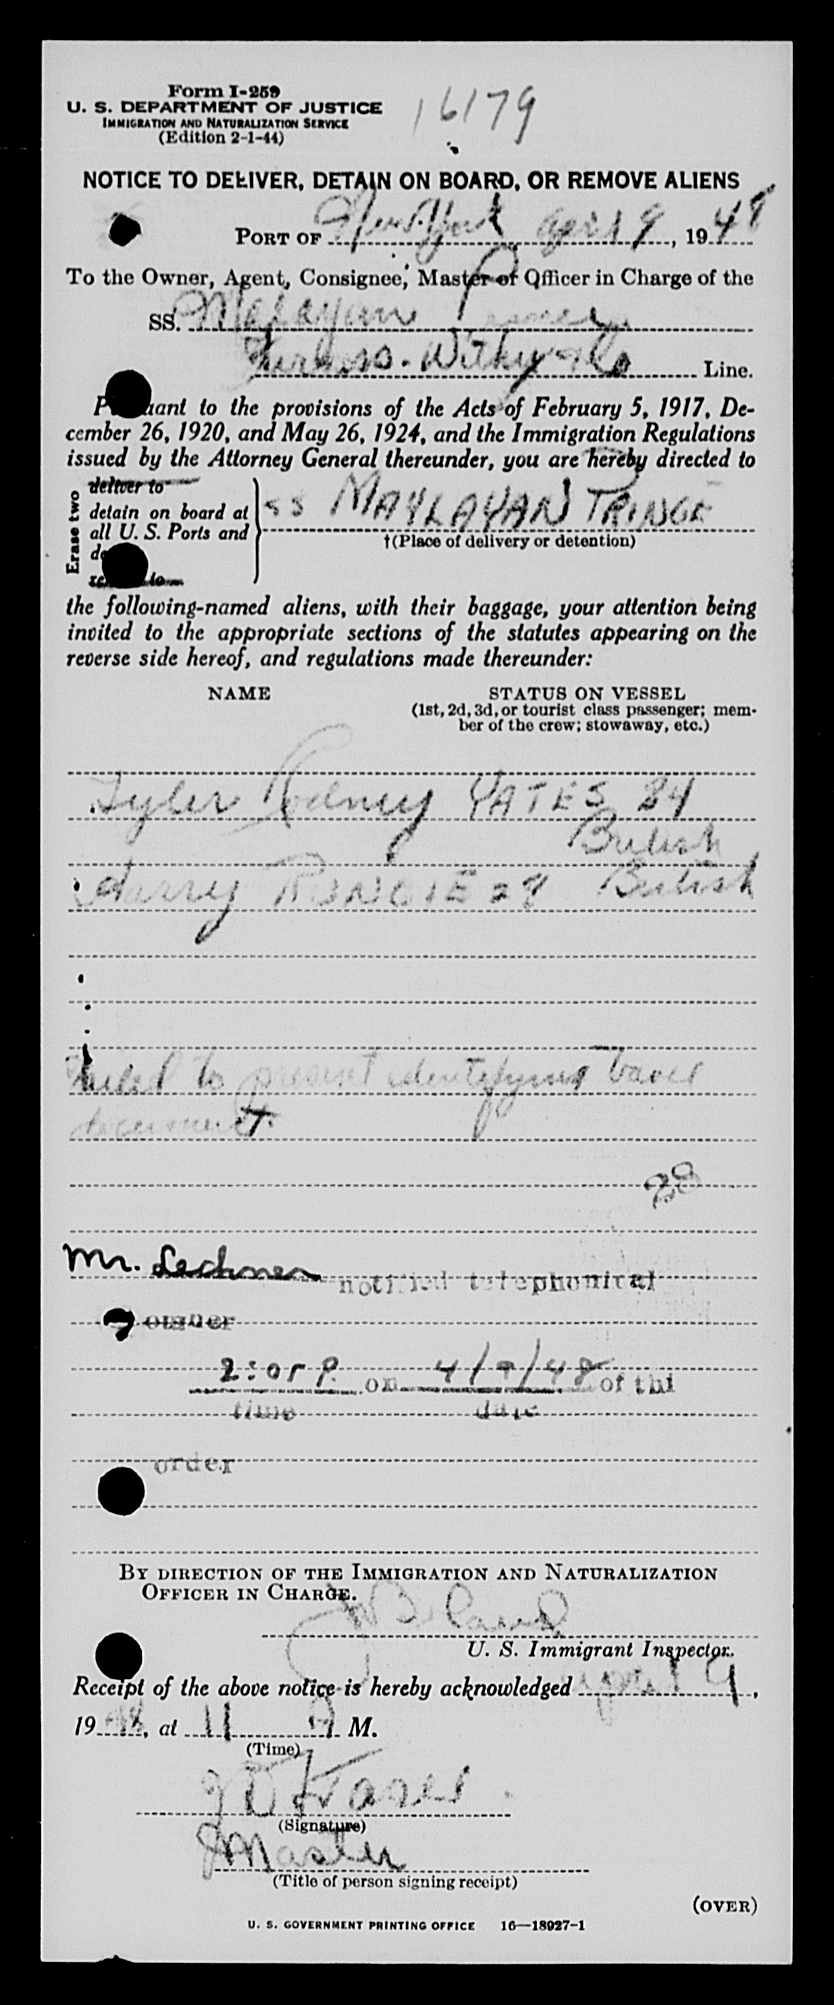 Form I-259
U. S. DEPARTMENT OF JUSTICE
IMMIGRATION AND NATURALIZATION SERVICE
(Edition 2-1-44)
16179
NOTICE TO DELIVER, DETAIN ON BOARD, OR REMOVE ALIENS
PORT OF New York April 9, 1948
To the Owner, Agent, Consignee, Master or Officer in Charge of the
SS. Malayan Prince
Furness-Withy & Co Line.
Pursuant to the provisions of the Acts of February 5, 1917, De-
cember 26, 1920, and May 26, 1924, and the Immigration Regulations
issued by the Attorney General thereunder, you are hereby directed to
Erase two
deliver to
detain on board at
all U. S. Ports and
SS MAYLAYAN PRINCE
†(Place of delivery or detention)
the following-named aliens, with their baggage, your attention being
invited to the appropriate sections of the statutes appearing on the
reverse side hereof, and regulations made thereunder:
NAME STATUS ON VESSEL
(1st, 2d, 3d, or tourist class passenger; mem-
ber of the crew; stowaway, etc.)
Tyler Rodney YATES 24
British
Harry RUNCIE 28 British
Failed to present identifying travel
document.
28
Mr. Lechner notified telephonical
owner
2:05 P. on 4/9/48 of thi
time date
order
BY DIRECTION OF THE IMMIGRATION AND NATURALIZATION
OFFICER IN CHARGE.
U. S. Immigrant Inspector.
Receipt of the above notice is hereby acknowledged April 9,
1948, at 11 M.
(Time)
(Signature)
Master
(Title of person signing receipt)
(OVER)
U. S. GOVERNMENT PRINTING OFFICE 16—18927-1